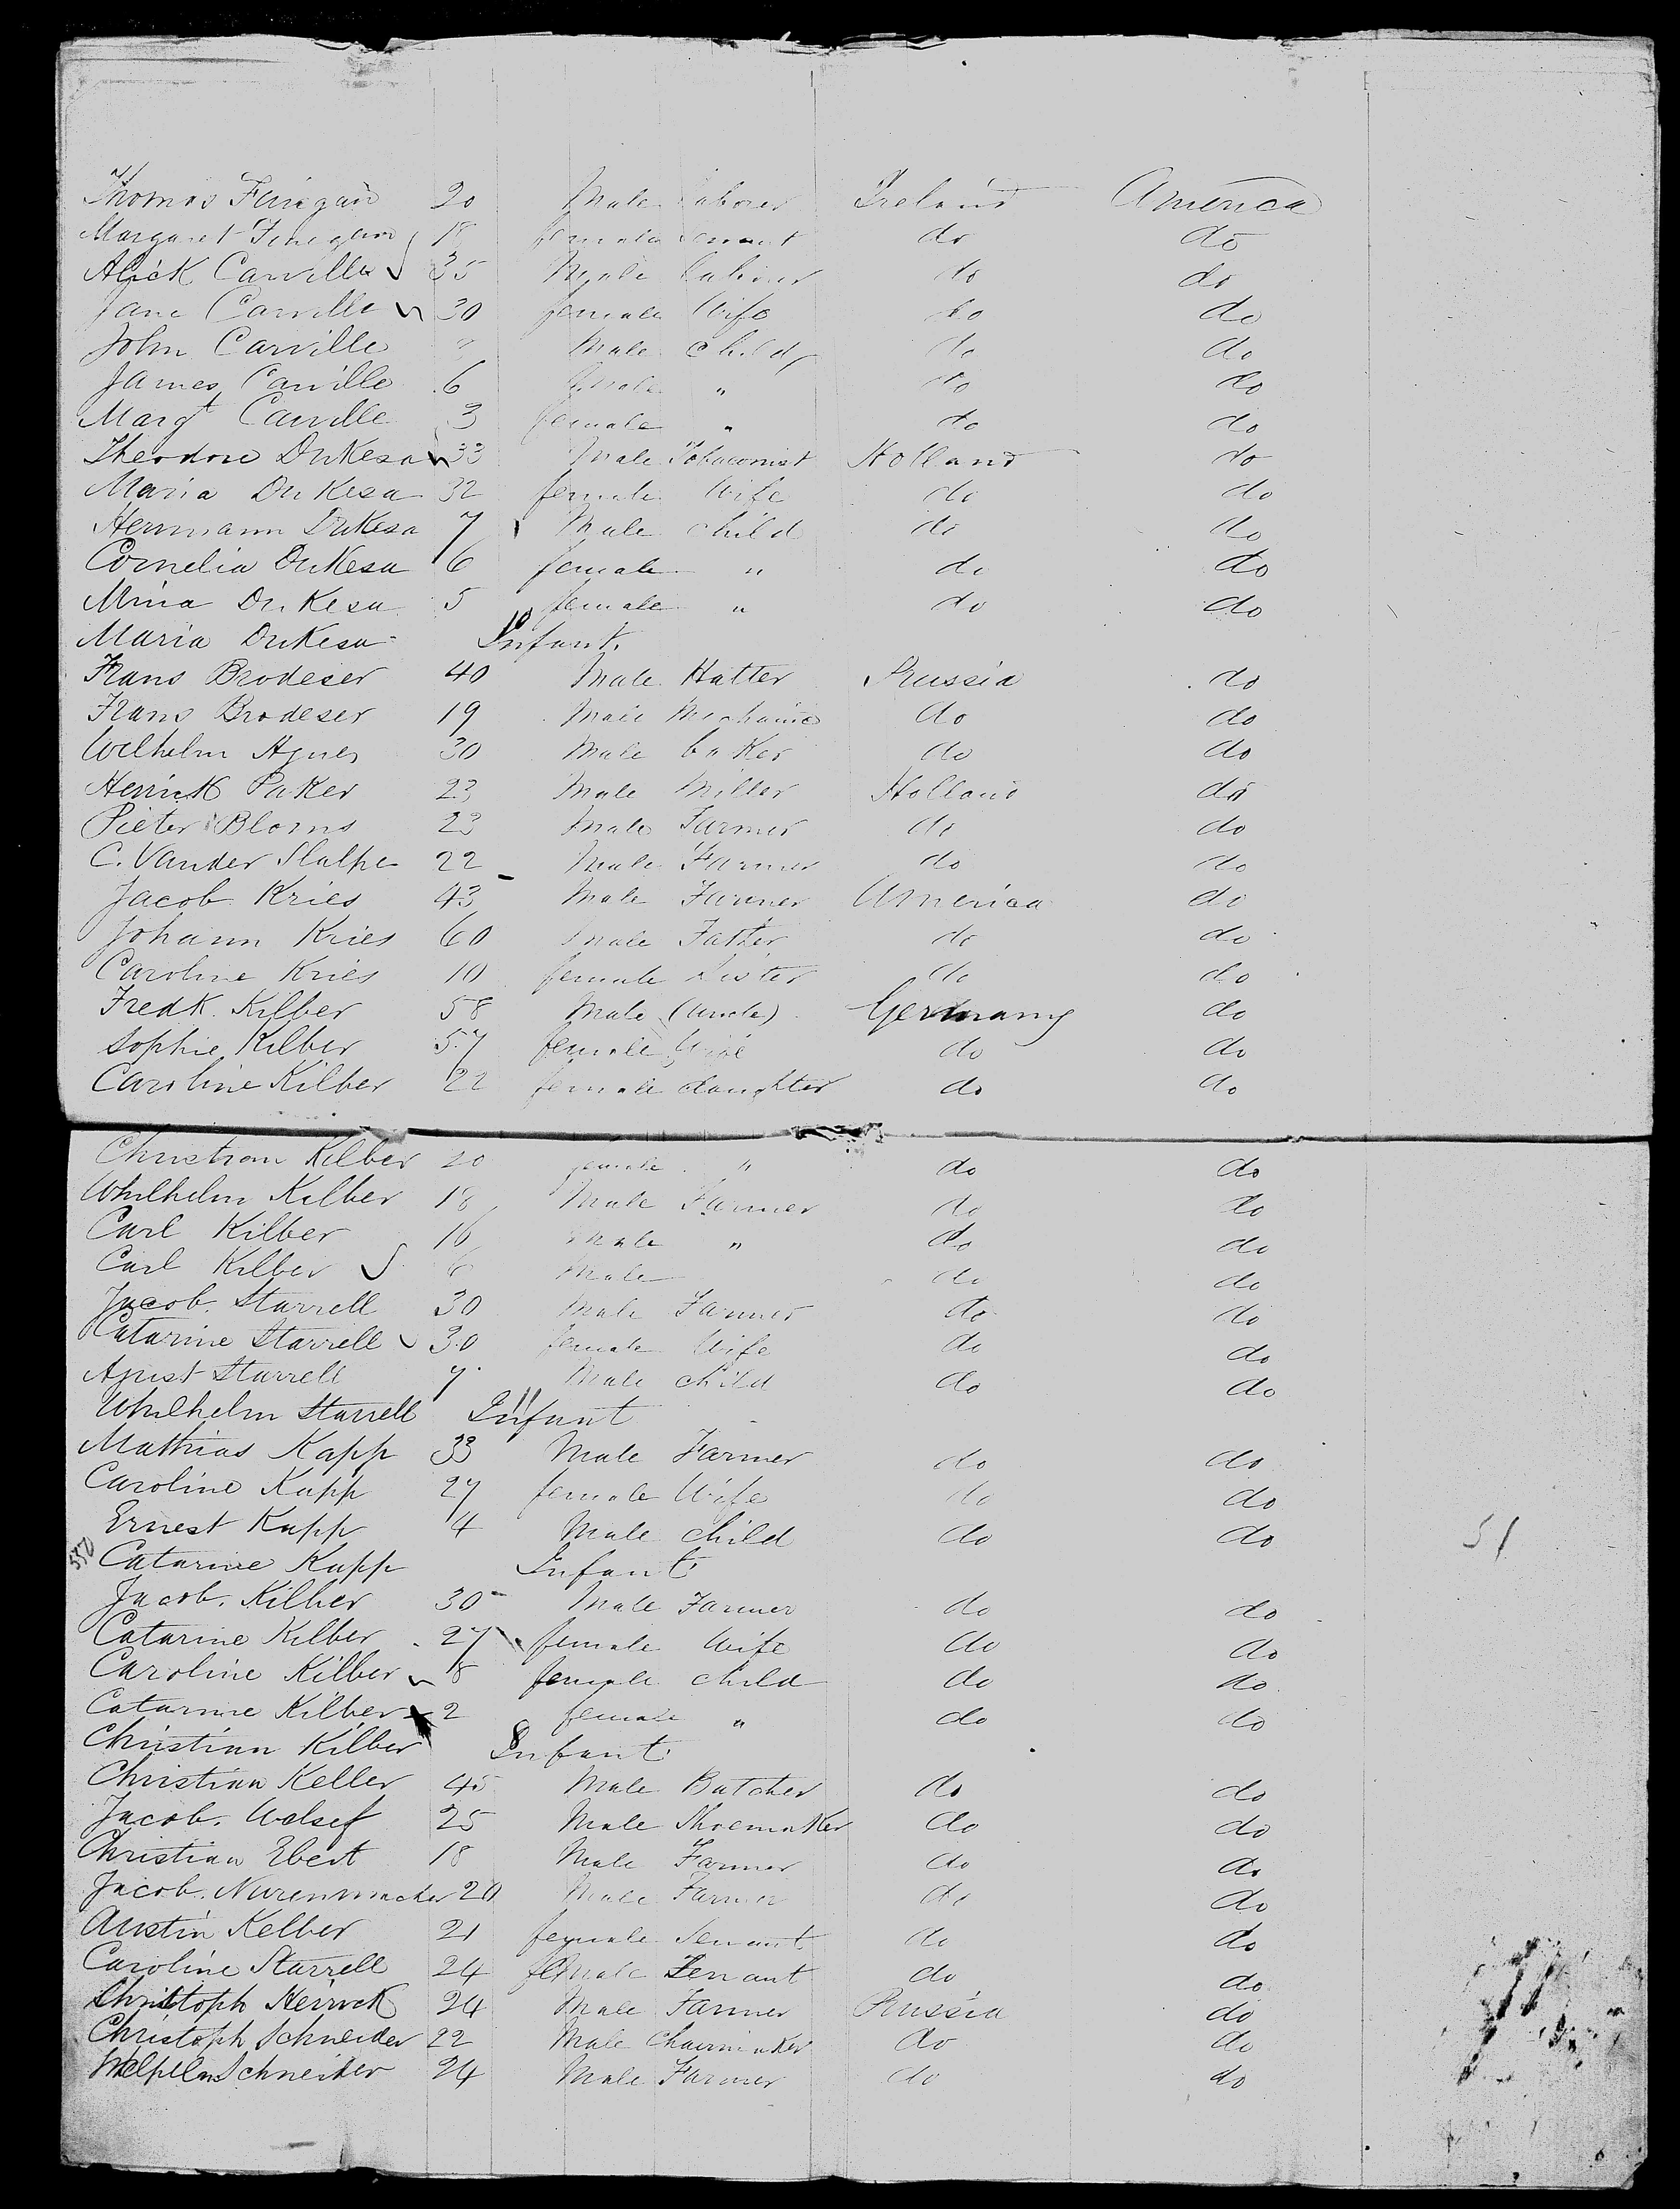 Thomas Finigan 20 Male laborer Ireland America
Margaret Finigan 18 female Servant do do
Alick Carville 35 Male laborer do do
Jane Carville 30 female Wife do do
John Carville Male child do do
James Carville 6 Male " do do
Margt Carville 3 female " do do
Theodore DuKesa 33 Male Tobaconist Holland do
Maria DuKesa 32 female Wife do do
Herrmann DuKesa 7 Male child do do
Cornelia DuKesa 6 female " do do
Mina DuKesa 5 female " do do
Maria DuKesa 10 Infant
Frans Brodeser 40 Male Hatter Prussia do
Frans Brodeser 19 Male Mechanic do do
Wilhelm Agnes 30 Male baKer do do
Henrick PaKer 23 Male Miller Holland do
Pieter Bloms 23 Male Farmer do do
C. Vander 22 Male Farmer do do
Jacob Kries 43 Male Farmer America do
Johann Kries 60 Male Father do do
Caroline Kries 10 female Sister do do
Fredk. Kilber 58 Male (Uncle) Germany do
Sophie Kilber 57 female Wife do do
Caroline Kilber 22 female daughter do do
Christian Kilber 20 female " do do
Whilhelm Kilber 18 Male Farmer do do
Carl Kilber 16 Male " do do
Carl Kilber 6 Male do do
Jacob. Starrell 30 Male Farmer do do
Catarine Starrell 30 female Wife do do
Agust Starrell 7 Male child do do
Whilhelm Starrell 11 Infant
Mathias Kapp 33 Male Farmer do do
Caroline Kapp 27 female Wife do do
Ernest Kapp 4 Male child do do 51
550 Catarine Kapp Infant
Jacob. Kilber 30 Male Farmer do do
Catarine Kilber 27 female Wife do do
Caroline Kilber 8 female child do do
Catarine Kilber 2 female " do do
Christian Kilber 8 Infant
Christian Keller 45 Male Butcher do do
Jacob. 25 Male ShoemaKer do do
Christian Ebert 18 Male Farmer do do
Jacob. Nurenmacher 20 Male Farmer do do
Austin Kelber 21 female Servant do do
Caroline Starrell 24 female Servant do do
Christoph Herrick 24 Male Farmer Prussia do
Christoph Schneider 22 Male ChairmaKer do do
Schneider 24 Male Farmer do do